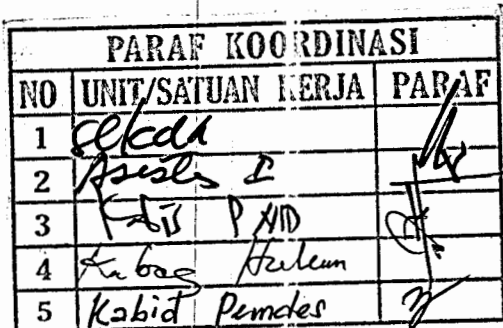 PARAF KOORDINASI
NO UNIT/SATUAN KERJA PARAF
1 Sekda
2 Asisten I
3 PMD
4 Kabag Hukum
5 Kabid Pemdes